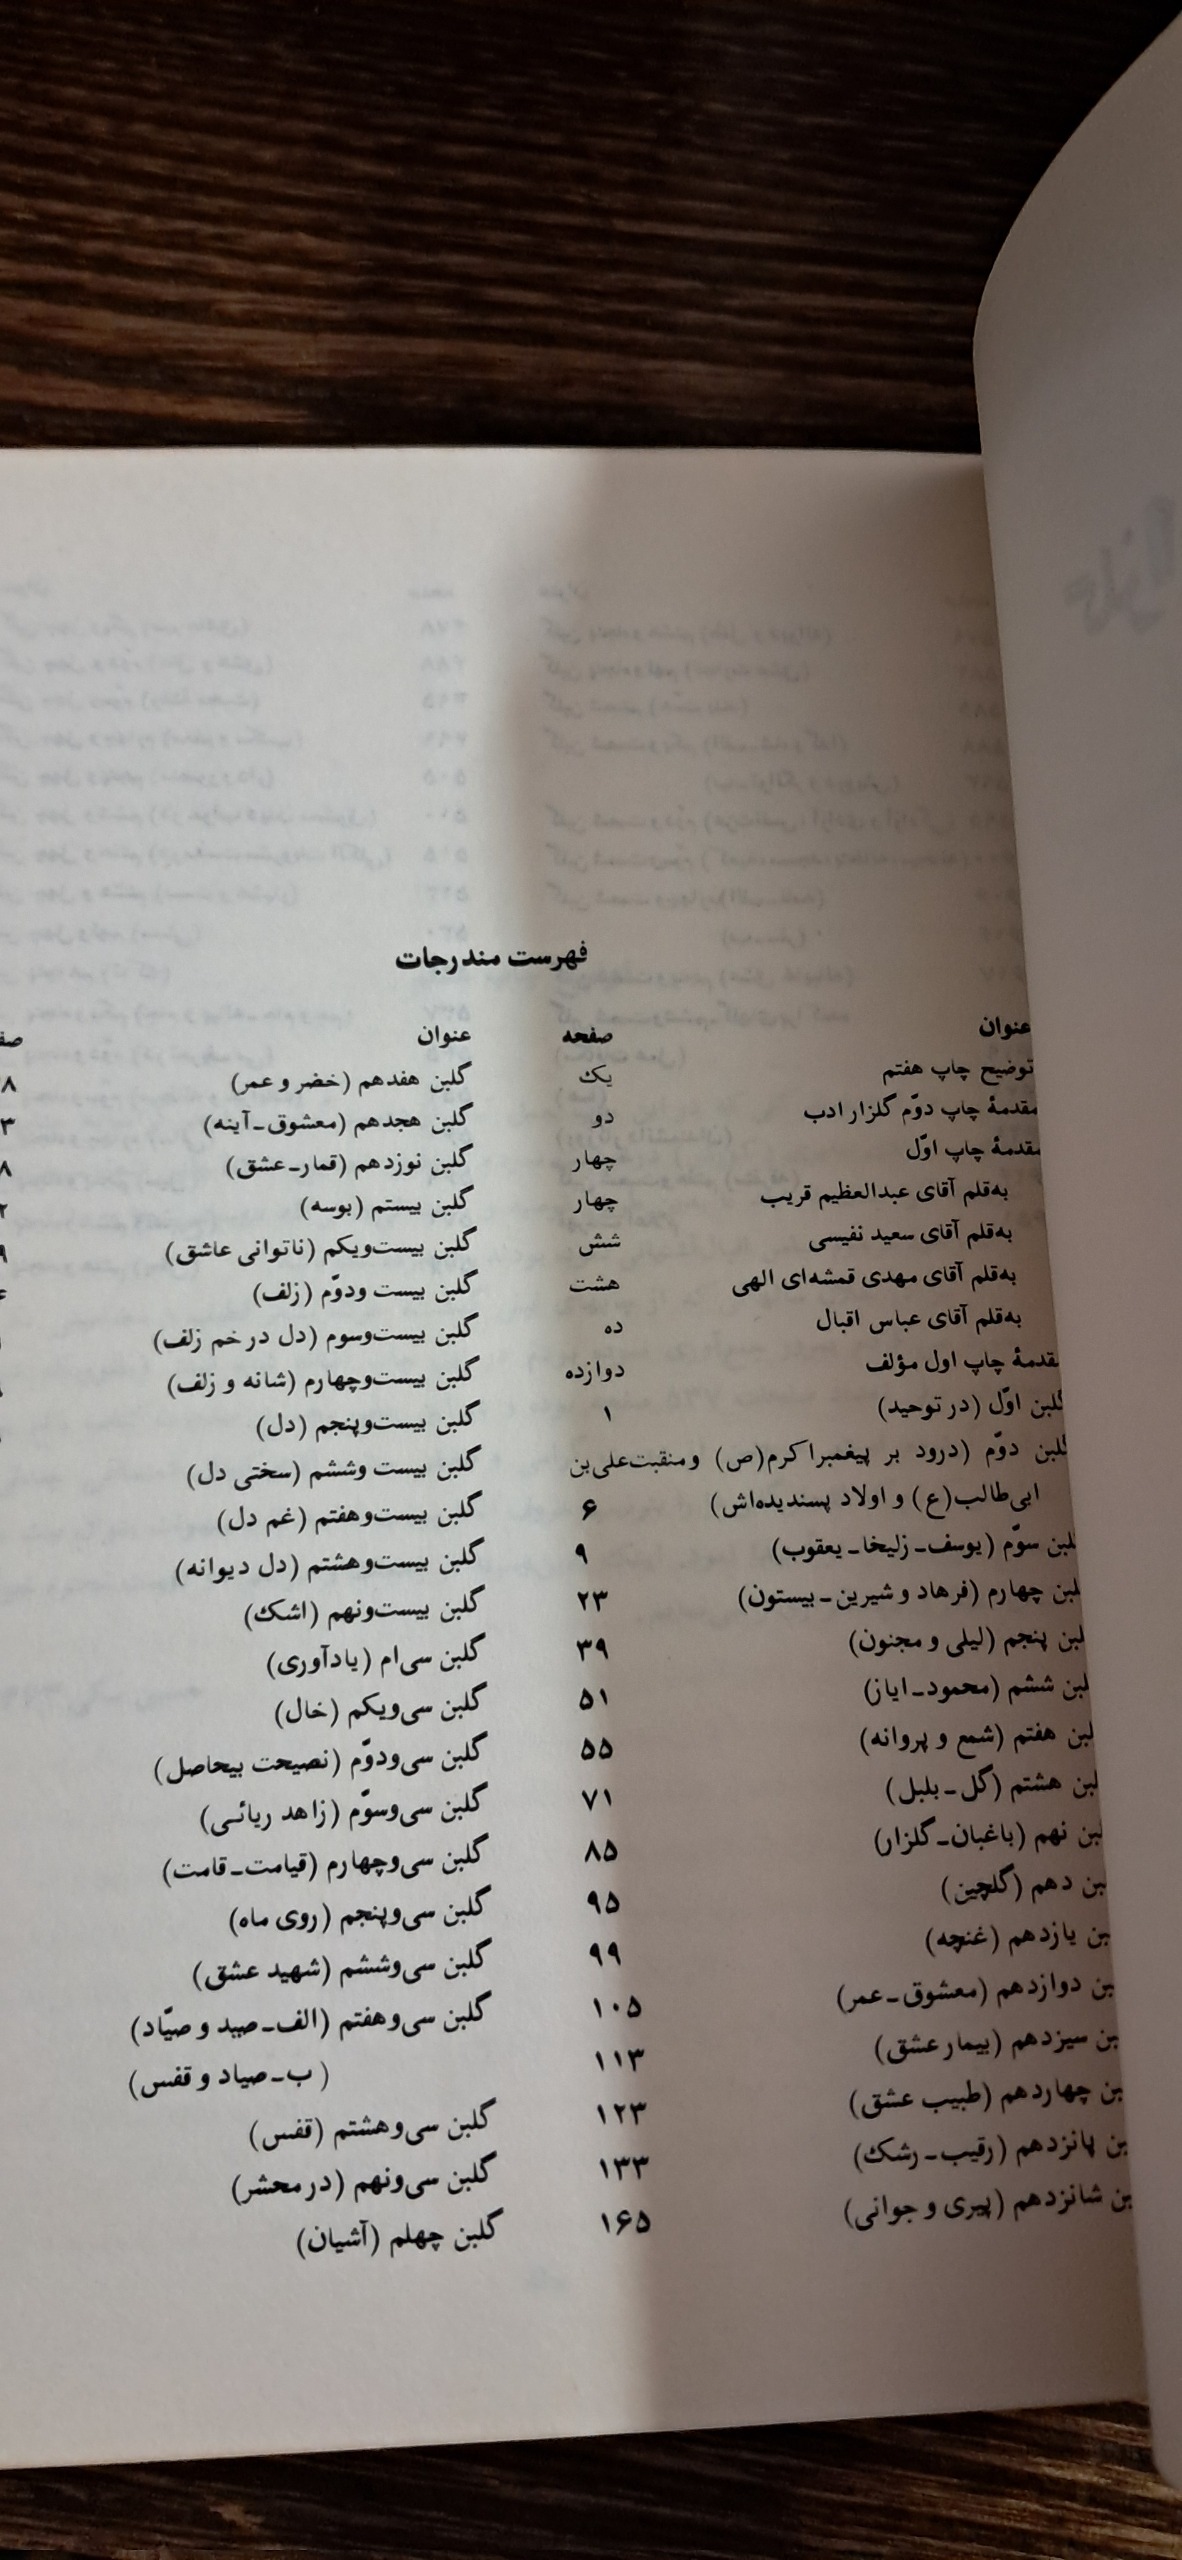 فهرست مندرجات
عنوان صفحه
توضیح چاپ هفتم یک
مقدمهٔ چاپ دوّم گلزار ادب دو
مقدمهٔ چاپ اوّل چهار
به‌قلم آقای عبدالعظیم قریب چهار
به‌قلم آقای سعید نفیسی شش
به‌قلم آقای مهدی قمشه‌ای الهی هشت
به‌قلم آقای عباس اقبال ده
مقدمهٔ چاپ اول مؤلف دوازده
گلبن اوّل (در توحید) ۱
گلبن دوّم (درود بر پیغمبراکرم(ص) ومنقبت‌علی‌بن
ابی‌طالب(ع) و اولاد پسندیده‌اش) ۶
گلبن سوّم (یوسف-زلیخا-یعقوب) ۹
لبن چهارم (فرهاد و شیرین-بیستون) ۲۳
لبن پنجم (لیلی و مجنون) ۳۹
لبن ششم (محمود-ایاز) ۵۱
لبن هفتم (شمع و پروانه) ۵۵
لبن هشتم (گل-بلبل) ۷۱
بن نهم (باغبان-گلزار) ۸۵
بن دهم (گلچین) ۹۵
بن یازدهم (غنچه) ۹۹
بن دوازدهم (معشوق-عمر) ۱۰۵
بن سیزدهم (بیمار عشق) ۱۱۳
بن چهاردهم (طبیب عشق) ۱۲۳
بن پانزدهم (رقیب-رشک) ۱۳۳
بن شانزدهم (پیری و جوانی) ۱۶۵
عنوان
گلبن هفدهم (خضر و عمر)
گلبن هجدهم (معشوق-آینه)
گلبن نوزدهم (قمار-عشق)
گلبن بیستم (بوسه)
گلبن بیست‌ویکم (ناتوانی عاشق)
گلبن بیست ودوّم (زلف)
گلبن بیست‌وسوم (دل در خم زلف)
گلبن بیست‌وچهارم (شانه و زلف)
گلبن بیست‌وپنجم (دل)
گلبن بیست وششم (سختی دل)
گلبن بیست‌وهفتم (غم دل)
گلبن بیست‌وهشتم (دل دیوانه)
گلبن بیست‌ونهم (اشک)
گلبن سی‌ام (یادآوری)
گلبن سی‌ویکم (خال)
گلبن سی‌ودوّم (نصیحت بیحاصل)
گلبن سی‌وسوّم (زاهد ریائی)
گلبن سی‌وچهارم (قیامت-قامت)
گلبن سی‌وپنجم (روی ماه)
گلبن سی‌وششم (شهید عشق)
گلبن سی‌وهفتم (الف-صید و صیّاد)
(ب-صیاد و قفس)
گلبن سی‌وهشتم (قفس)
گلبن سی‌ونهم (در محشر)
گلبن چهلم (آشیان)